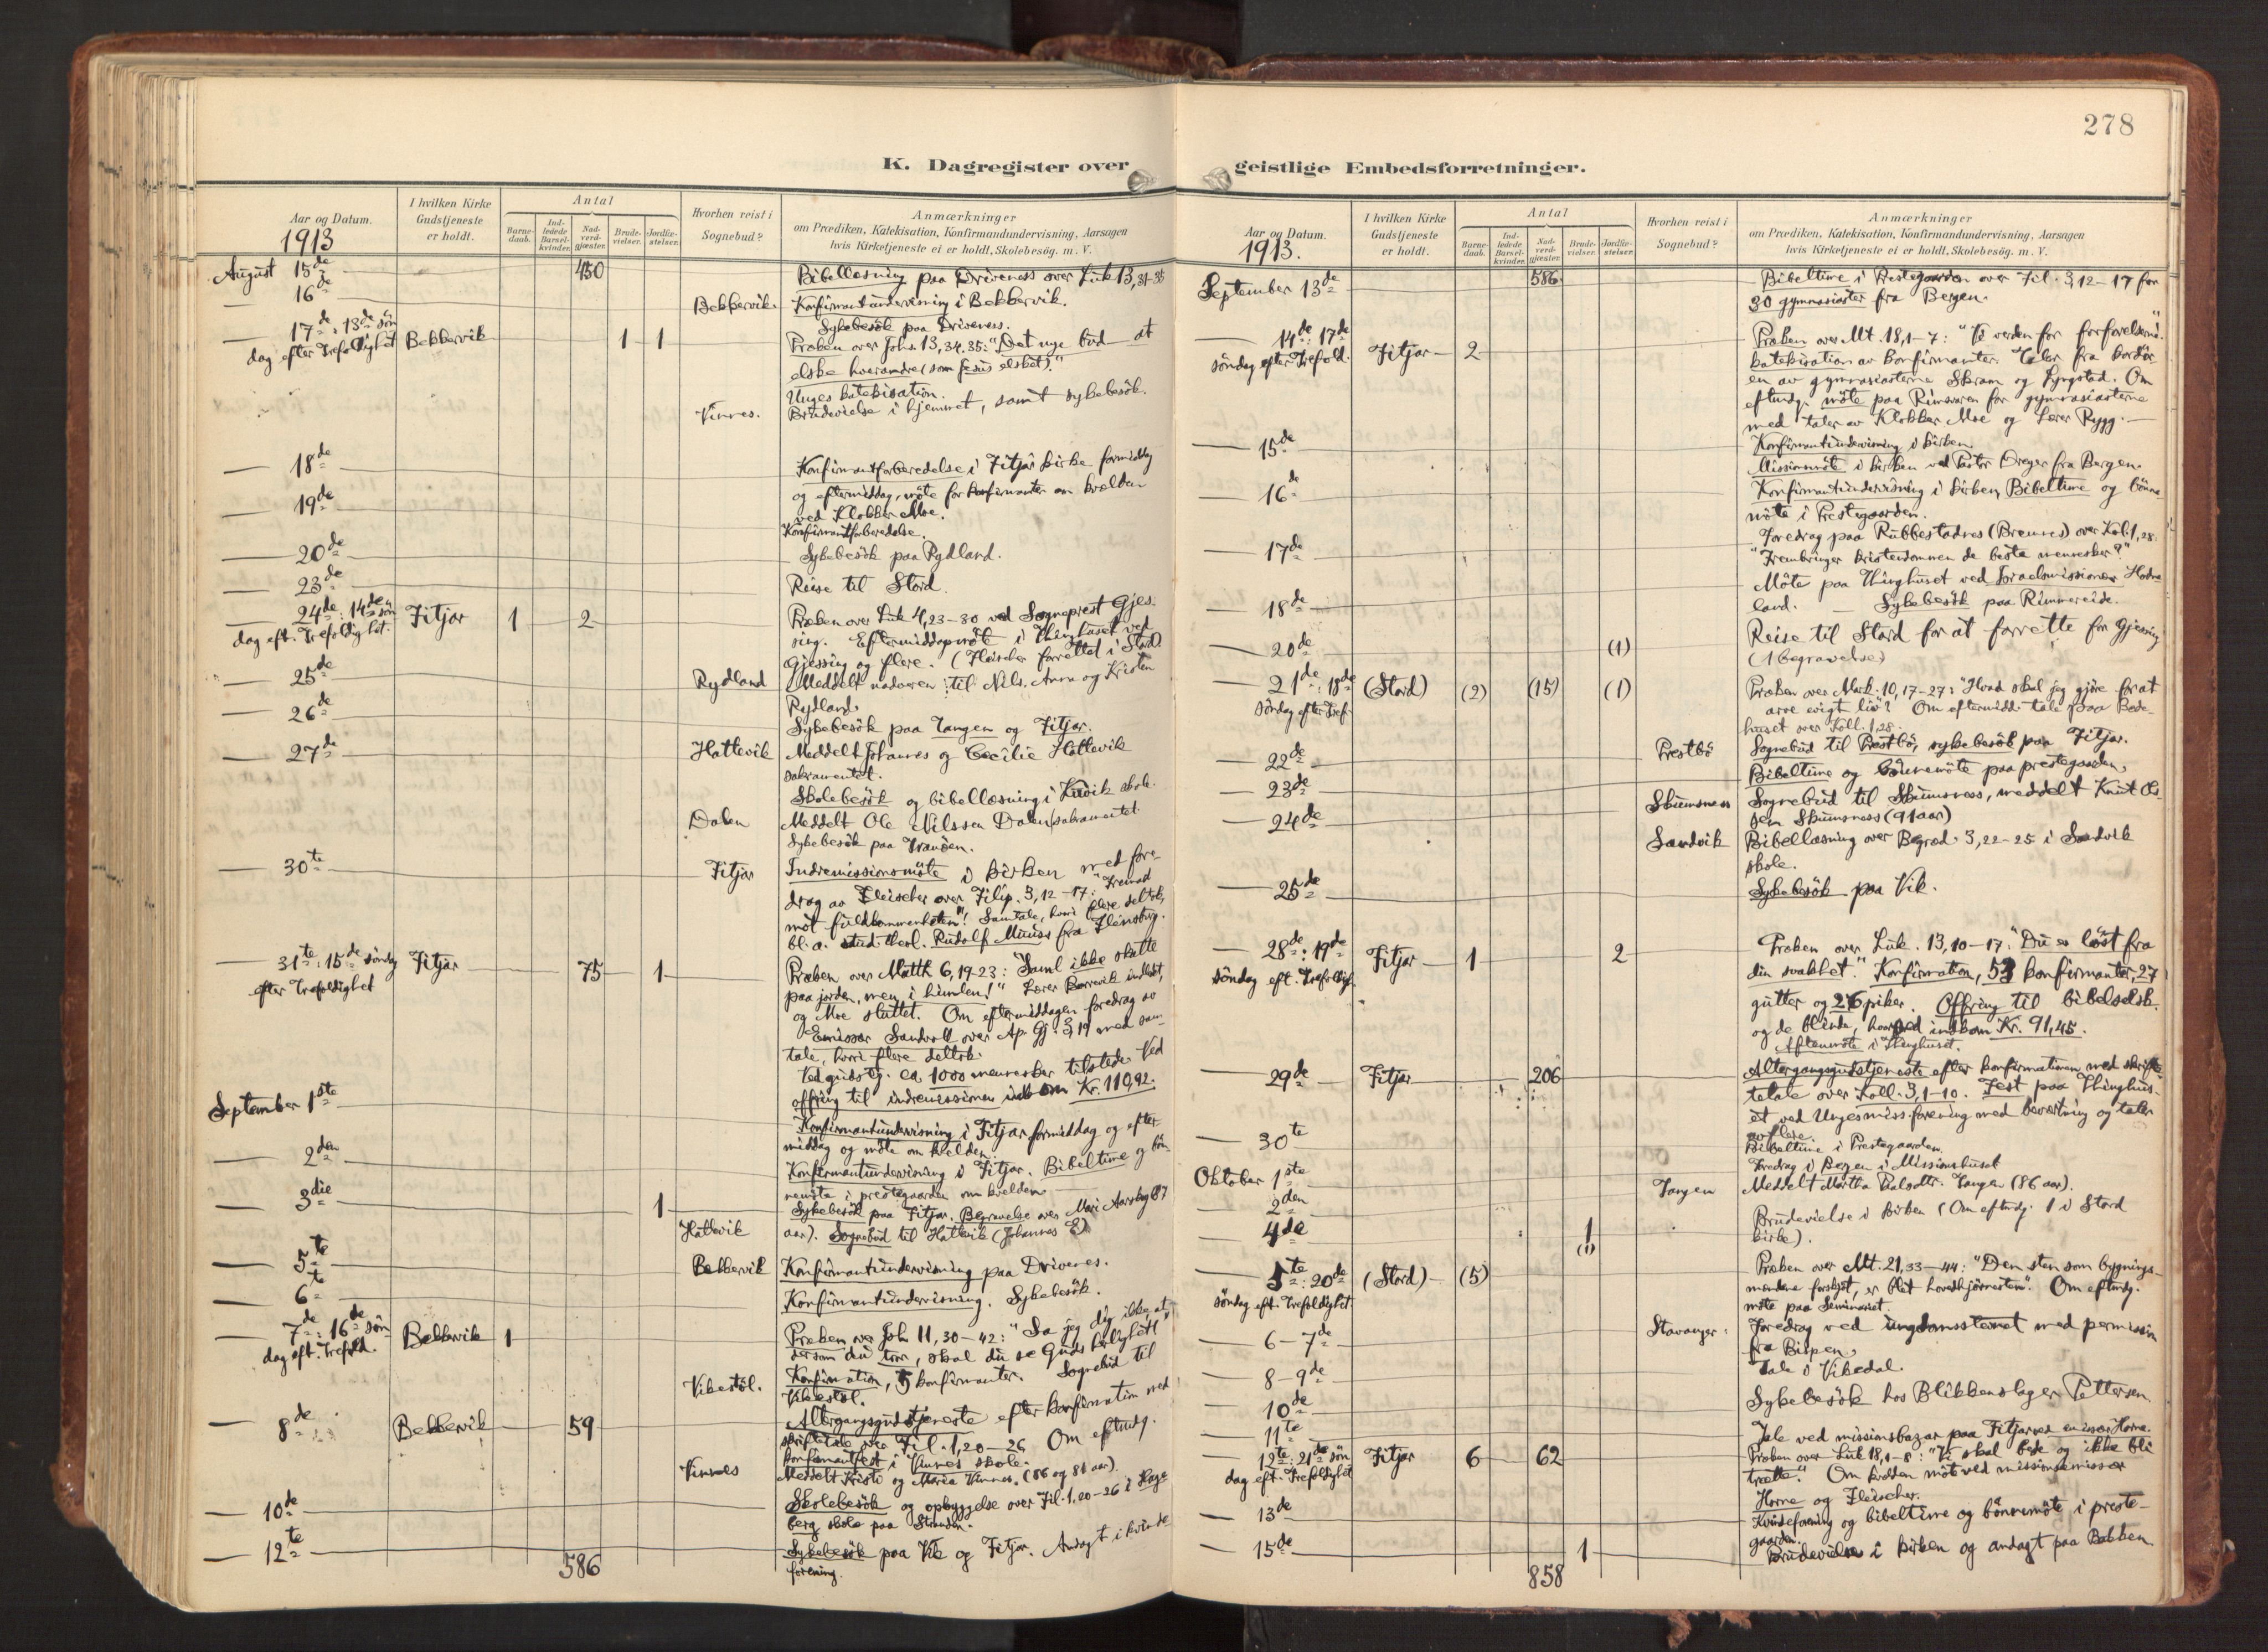 278
K. Dagregister over
geistlige Embedsforretninger.
Aar og Datum.
1913
I hvilken Kirke Gudstjeneste er holdt.
Antal
Barnedaab.
Indledede Barselkvinder.
Nadverdgjæster.
Brudevielser.
Jordfæstelser.
Hvorhen reist i Sognebud?
Anmærkninger
om Prædiken, Katekisation, Konfirmandundervisning, Aarsagen
hvis Kirketjeneste ei er holdt, Skolebesög. m. V.
August 15de 450 Bibellæsning paa Driveness over Luk 13,31-35
16de Bekkervik Konfirmantundervisning i Bekkervik.
Sykebesök paa Driveness.
17de: 13de søn
dag efter Trefoldighet Bekkervik 1 1 Præken over Johs. 13,34.35: "Det nye bud at
elske hverandre (som Jesus elsket)."
Unges katekisation.
Vinnes. Brudevielse i hjemmet, samt sykebesök.
18de Konfirmantforberedelse i Fitjar kirke formiddag
og eftermiddag, möte for konfirmanter om kvælden
19de ved Klokker Moe.
Konfirmantforberedelse.
20de Sykebesök paa Rydland.
23de Reise til Stord.
24de: 14de søn
dag eft. Trefoldighet. Fitjar 1 2 Præken over Luk 4,23-30 ved Sogneprest Gjes-
sing. Eftermiddagsmöte i Thinghuset ved
Gjessing og flere. (Fleischer forrettet i Stord)
25de Rydland Meddelt nadveren til Nils, Anna og Kristen
Rydland.
26de Sykebesök paa Tangen og Fitjar.
27de Hattevik Meddelt Johannes og Cecilie Hattevik
sakramentet.
Skolebesök og bibellæsning i skole.
Dalen Meddelt Ole Nilssen Dalen sakramentet.
Sykebesök paa
30te Fitjar Indremissionsmöte i kirken med fore-
drag av Fleischer over Filip. 3,12-17: "Fremad
mot fuldkommenheten"! Samtale, hvori flere deltok,
bl. a. stud. theol. Rudolf Muuss fra Flensburg.
31te: 15de søndag
efter Trefoldighet Fitjar 75 1 Præken over Matth 6,19-23: "Saml ikke skatte
paa jorden, men i himlen!" Lærer indledet,
og Moe sluttet. Om eftermiddagen foredrag av
Emissær Sandvoll over Ap. Gj. 3,19 med sam-
tale, hvori flere deltok.
Ved gudstj. ca 1000 mennesker tilstede. Ved
offring til indremissionen indkom Kr. 110,92.
September 1ste Konfirmantundervisning i Fitjar formiddag og efter-
middag og möte om kvelden.
2den Konfirmantundervisning i Fitjar. Bibeltime og bön-
nemöte i prestegaarden om kvelden.
3die 1 Sykebesök paa Fitjar. Begravelse over Mari (87
Hattevik aar). Sognebud til Hattevik (Johannes E.)
5te Bekkervik Konfirmantundervisning paa Drivenes.
6te Konfirmantundervisning. Sykebesök.
7de: 16de søn
dag eft. Trefold. Bekkervik 1 Præken over Joh 11,30-42: "Sa jeg dig ikke at
dersom du tror, skal du se Guds herlighet!"
Konfirmation, 5 konfirmanter. Sognebud til
Vikestöl. Vikestöl.
8de Bekkervik 59 Altergangsgudstjeneste efter konfirmation med
skriftetale over Fil. 1,20-26 Om eftmdg.
konfirmantfest i Vinnes skole.
Vinnes Meddelt Kristi og Maria Vinnes. (86 og 81 aar).
10de Skolebesök og opbyggelse over Fil. 1,20-26 i Haga-
berg skole paa Stranden.
12te Sykebesök paa Vik og Fitjar. Andagt i kvinde
forening.
586
Aar og Datum.
1913.
I hvilken Kirke Gudstjeneste er holdt.
Antal
Barnedaab.
Indledede Barselkvinder.
Nadverdgjæster.
Brudevielser.
Jordfæstelser.
Hvorhen reist i Sognebud?
Anmærkninger
om Prædiken, Katekisation, Konfirmandundervisning, Aarsagen
hvis Kirketjeneste ei er holdt, Skolebesög. m. V.
September 13de 586 Bibeltime i Prestegaarden over Fil. 3,12-17 for
30 gymnasiaster fra Bergen.
14de: 17de
söndag efter Trefold. Fitjar 2 Præken over Mt. 18,1-7: "Ve verden for forførelserne!"
katekisation av konfirmanter. Taler fra kordør-
en av gymnasiasterne Skram og Lyngstad. Om
eftmdg. möte paa Rimsvaren for gymnasiasterne
med taler av Klokker Moe og Lærer Rygg.
15de Konfirmantundervisning i kirken.
Missionsmöte i kirken ved Pastor Dreyer fra Bergen.
16de Konfirmantundervisning i kirken, Bibeltime og bönne
möte i Prestegaarden.
17de Foredrag paa Rubbestadnes (Bremnes) over Kol. 1,28.
"Frembringer kristendommen de beste mennesker?"
Möte paa Thinghuset ved Israelsmissionær
18de land. Sykebesök paa Rimmereide.
20de (1) Reise til Stord for at forrette for Gjessing
(1 begravelse)
21de: 18de
söndag efter Tref. (Stord) (2) (15) (1) Præken over Mark. 10,17-27: "Hvad skal jeg gjöre for at
arve evigt liv"? Om eftermidd. tale paa Bede-
huset over Koll. 1,28.
22de Prestbö Sognebud til Prestbö, sykebesök paa Fitjar.
Bibeltime og bönnemöte paa prestegaarden.
23de Skumsnes Sognebud til Skumsness, meddelt Knut Ol-
24de sen Skumsness (91 aar)
Sandvik Bibellæsning over Begræd. 3,22-25 i Sandvik
skole.
25de Sykebesök paa Vik.
28de: 19de
söndag eft. Trefoldigh. Fitjar 1 2 Præken over Luk. 13,10-17: "Du er löst fra
din svakhet." Konfirmation, 53 konfirmanter, 27
gutter og 26 piker. Offring til bibelselsk.
og de blinde, hvorved indkom Kr. 91,45.
Aftenmöte i Thinghuset.
29de Fitjar 206 Altergangsgudstjeneste efter konfirmationen med skrifte-
tale over Koll. 3,1-10. Fest paa Thinghus-
et ved Ungesmiss.forening med bevertning og taler
av flere.
30te Bibeltime i Prestegaarden.
Oktober 1ste Foredrag i Bergen i Missionshuset
2den Tangen Meddelt Martha Tangen (86 aar).
4de 1 (1) Brudevielse i kirken (Om eftmdg. 1 i Stord
kirke).
5te: 20de
söndag eft. Trefoldighet. (Stord) (5) Præken over Mt. 21,33-44: "Den sten som bygnings-
mændene forskjöt, er blit hovedhjörnesten". Om eftmdg.
möte paa Seminariet.
6-7de Stavanger Foredrag ved ungdomsstevnet med permission
fra Bispen.
8-9de Tale i Vikedal.
10de Sykebesök hos Blikkenslager Pettersen.
11te Tale ved missionsbazar paa Fitjar ved emissær Horne.
12te: 21de søn
dag eft. Trefoldighet Fitjar 6 62 Præken over Luk 18,1-8: "Vi skal bede og ikke bli
trætte." Om kvelden möte ved missionsemissær
Horne og Fleischer.
13de Kvindeforening og bibeltime og bönnemöte i preste-
gaarden.
15de 1 Brudevielse i kirken og andagt paa Bakken.
858